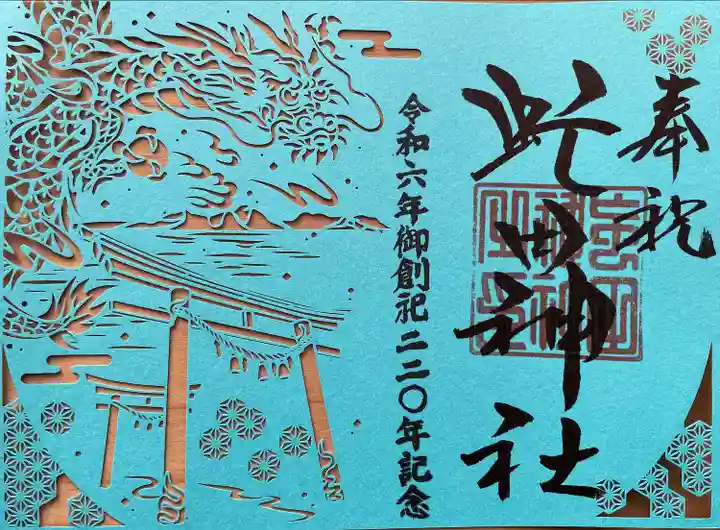 奉祝
虻田神社
令和六年御創祀二二〇年記念